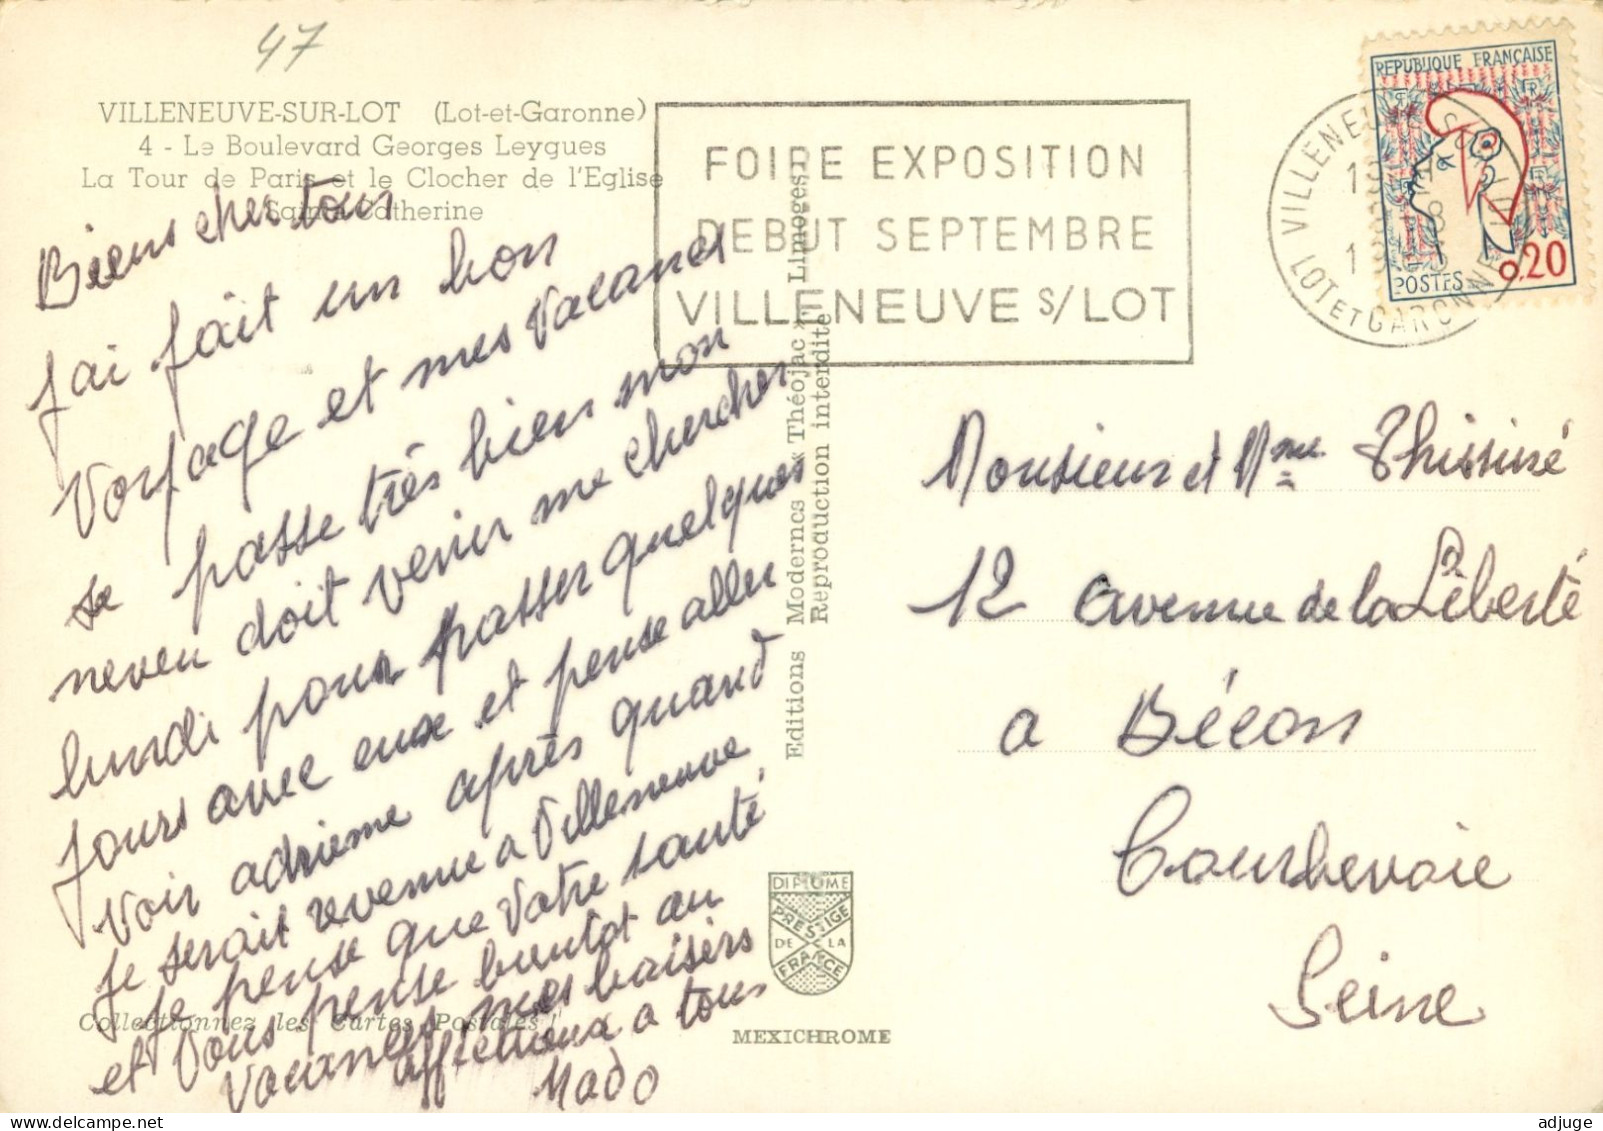 47
VILLENEUVE-SUR-LOT (Lot-et-Garonne)
4 - Le Boulevard Georges Leygues
La Tour de Paris et le Clocher de l'Eglise
Sainte Catherine
FOIRE EXPOSITION
DEBUT SEPTEMBRE
VILLENEUVE S/LOT
VILLENEUVE SUR LOT
LOT ET GARONNE
REPUBLIQUE FRANÇAISE
0,20
POSTES
Biens cher tous
J'ai fait un bon
Voyage et mes Vacances
se passe très bien mon
neveu doit venir me chercher
lundi pour passer quelques
jours avec eux et pense aller
voir adrienne après quand
je serait revenue a Villeneuve,
Je pense que Votre santé
et Vous pense bientot au
Vacances mes baisers
affectueux a tous
Mado
Editions Modernes "Théojac" Limoges
Reproduction interdite
Monsieur et Mme Thissiné
12 avenue de la Liberté
a Bécon
Courbevoie
Seine
DIPLOME
PRESTIGE
DE LA
FRANCE
MEXICHROME
Collectionnez les Cartes Postales !
adjuge